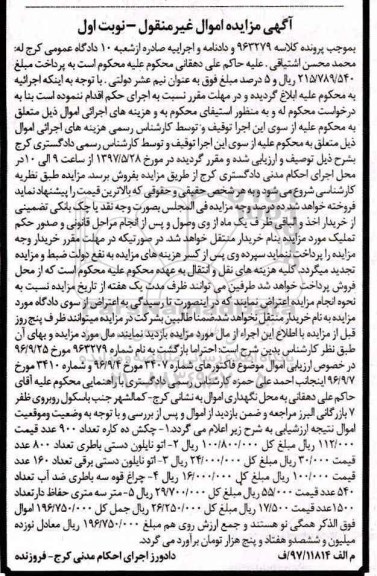 آگهی مزایده اموال غیر منقول – نوبت اول
بموجب پرونده کلاسه ۹۶۳۲۷۹ و دادنامه و اجراییه صادره ازشعبه ۱۰ دادگاه عمومی کرج له:
محمد محسن اشتیاقی . علیه حاکم علی دهقانی محکوم علیه محکوم است به پرداخت مبلغ
۲۱۵/۷۸۹/۵۴۰ ریال و ۵ درصد مبلغ فوق به عنوان نیم عشر دولتی . با توجه به اینکه اجرائیه
به محکوم علیه ابلاغ گردیده و در مهلت مقرر نسبت به اجرای حکم اقدام ننموده است بنا به
درخواست محکوم له و به منظور استیفای محکوم به و هزینه های اجرائی اموال ذیل متعلق
به محکوم علیه از سوی این اجرا توقیف و توسط کارشناس رسمی هزینه های اجرائی اموال
ذیل متعلق به محکوم علیه از سوی این اجرا توقیف و توسط کارشناس رسمی دادگستری کرج
بشرح ذیل توصیف و ارزیابی شده و مقرر گردیده در مورخ ۱۳۹۷/۵/۲۸ از ساعت ۹ الی ۱۰در
محل اجرای احکام مدنی دادگستری کرج از طریق مزایده بفروش برسد. مزایده طبق نظریه
کارشناسی شروع می شود و به هر شخص حقیقی و حقوقی که بالاترین قیمت را پیشنهاد نماید
فروخته خواهد شد ده درصد وجه مزایده فی المجلس بصورت وجه نقد یا چک بانکی تضمینی
از خریدار اخذ و الباقی ظرف یک ماه از وی وصول و پس از انجام مراحل قانونی و صدور حکم
تملیک مورد مزایده بنام خریدار منتقل خواهد شد. در صورتیکه در مهلت مقرر خریدار وجه
مزایده را پرداخت ننماید سپرده وی پس از کسر هزینه های مزایده به نفع دولت ضبط و مزایده
تجدید میگردد. کلیه هزینه های نقل و انتقال به عهده محکوم علیه محکوم است که از محل
فروش پرداخت خواهد شد طرفین می توانند ظرف مدت یک هفته از تاریخ مزایده نسبت به
نحوه انجام مزایده اعتراض نمایند که در اینصورت تا رسیدگی به اعتراض از سوی دادگاه مورد
مزایده به نام خریدار منتقل نخواهد شد.ضمنا طالبین شرکت در مزایده میتوانند ظرف پنج روز
قبل از مزایده با اطلاع این اجراء از مال مورد مزایده بازدید نمایند. مال مورد مزایده و بهای آن
طبق نظر کارشناس بدین شرح است: احتراما بازگشت به نام شماره ۹۶۳۲۷۹ مورخ ۹۶/۹/۲۵
در خصوص ارزیابی اموال موضوع فاکتورهای شماره ۳۴۰۷ مورخ ۹۶/۹/۴ و شماره ۳۴۱۰ مورخ
۹۶/۹/۷ اینجانب احمد علی حمزه کارشناس رسمی دادگستری با راهنمایی محکوم علیه آقای
حاکم علی دهقانی به محل نگهداری اموال به نشانی کرج- کمالشهر جنب باسکول روبروی ظفر
۷ بازرگانی البرز مراجعه و ضمن بازدید از اموال و پس از بررسی و با توجه به وضعیت وموقعیت
اموال نتیجه ارزشیابی به شرح زیر اعلام می گردد.۱- چکش ده کاره تعداد ۹۰۰ عدد قیمت
۱۱۲/۰۰۰ ریال مبلغ کل ۱۰۰/۸۰۰/۰۰۰ ریال ۲- اتو نایلون دستی باطری تعداد ۸۰۰ عدد
قیمت ۳۰/۰۰۰ ریال مبلغ کل ۲۴/۰۰۰/۰۰۰ ریال ۳- اتو نایلون دستی برقی تعداد ۱۶۰ عدد
قیمت ۱۰۰/۰۰۰ ریال مبلغ کل ۱۶/۰۰۰/۰۰۰ ریال ۴- چراغ قوه سه باطری ضد آب تعداد
۵۴۰ عدد قیمت ۵۵/۰۰۰ ریال مبلغ کل ۲۹/۷۰۰/۰۰۰ ریال ۵- متر سه متری حفاظ دار تعداد
۱۵۰۰ عدد قیمت ۱۷/۵۰۰ ریال مبلغ کل ۲۶/۲۵۰/۰۰۰ ریال جمل کل ۱۹۶/۷۵۰/۰۰۰ اموال
فوق الذکر همگی نو هستند و جمع ارزش روی هم مبلغ ۱۹۶/۷۵۰/۰۰۰ ریال معادل نوزده
میلیون و ششصدو هفتاد و پنج هزار تومان برآورد می گردد.
م الف ۹۷/۱۱۸۱۴/ف دادورز اجرای احکام مدنی کرج- فروزنده